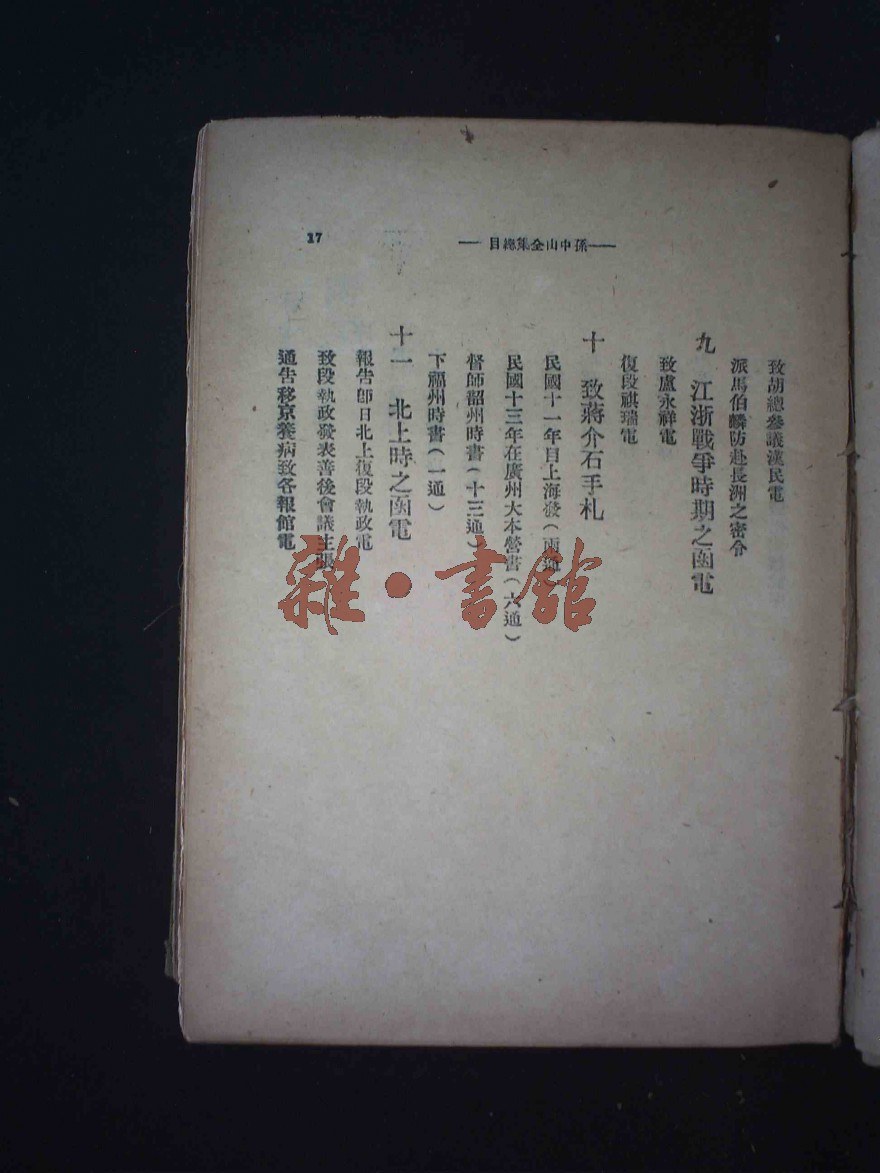 17
—孫中山全集總目—
致胡總參議漢民電
派馬伯麟防赴長洲之密令
九 江浙戰爭時期之函電
致盧永祥電
復段祺瑞電
十 致蔣介石手札
民國十一年目上海發(兩通)
民國十三年在廣州大本營書(六通)
督師韶州時書(十三通)
下福州時書(一通)
十一 北上時之函電
報告卽日北上復段執政電
致段執政發表善後會議主張
通告移京養病致各報館電
雜·書館